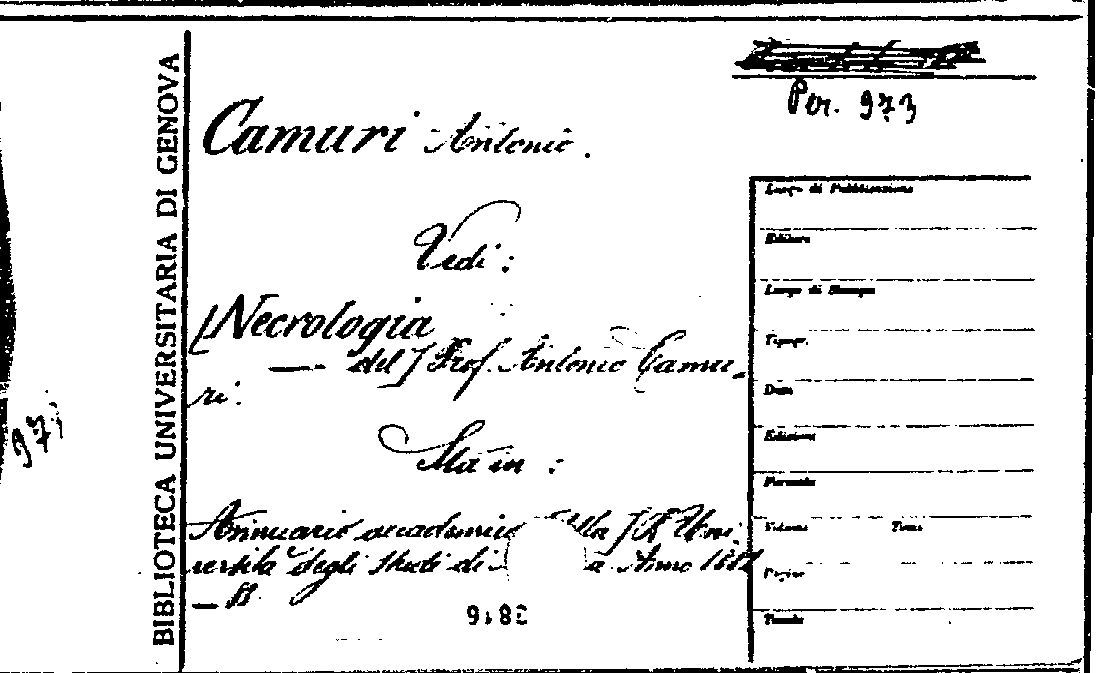 Per. 973
BIBLIOTECA UNIVERSITARIA DI GENOVA
Camuri Antonio.
Vedi:
[Necrologia
— del] Prof. Antonio Camu-
ri.
Sta in:
Annuario accademico della R. Uni-
versità degli Studi di a Anno
9182
973
Luogo di Pubblicazione
Editore
Luogo di Stampa
Tipogr.
Data
Edizione
Formato
Volume Tomo
Pagine
Tavole